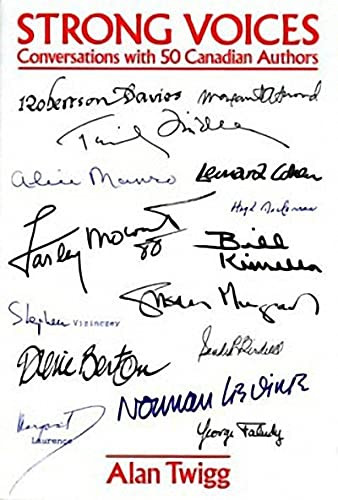 STRONG VOICES
Conversations with 50 Canadian Authors
Robertson Davies Margaret Atwood
Timothy Findley
Alice Munro Leonard Cohen
Hugh MacLennan
Farley Mowat
88
Bill
Kinsella
Susan Musgrave
Stephen VIZINCZEY
Pierre Berton
Norman Levine
Margaret
Laurence
George Faludy
Alan Twigg